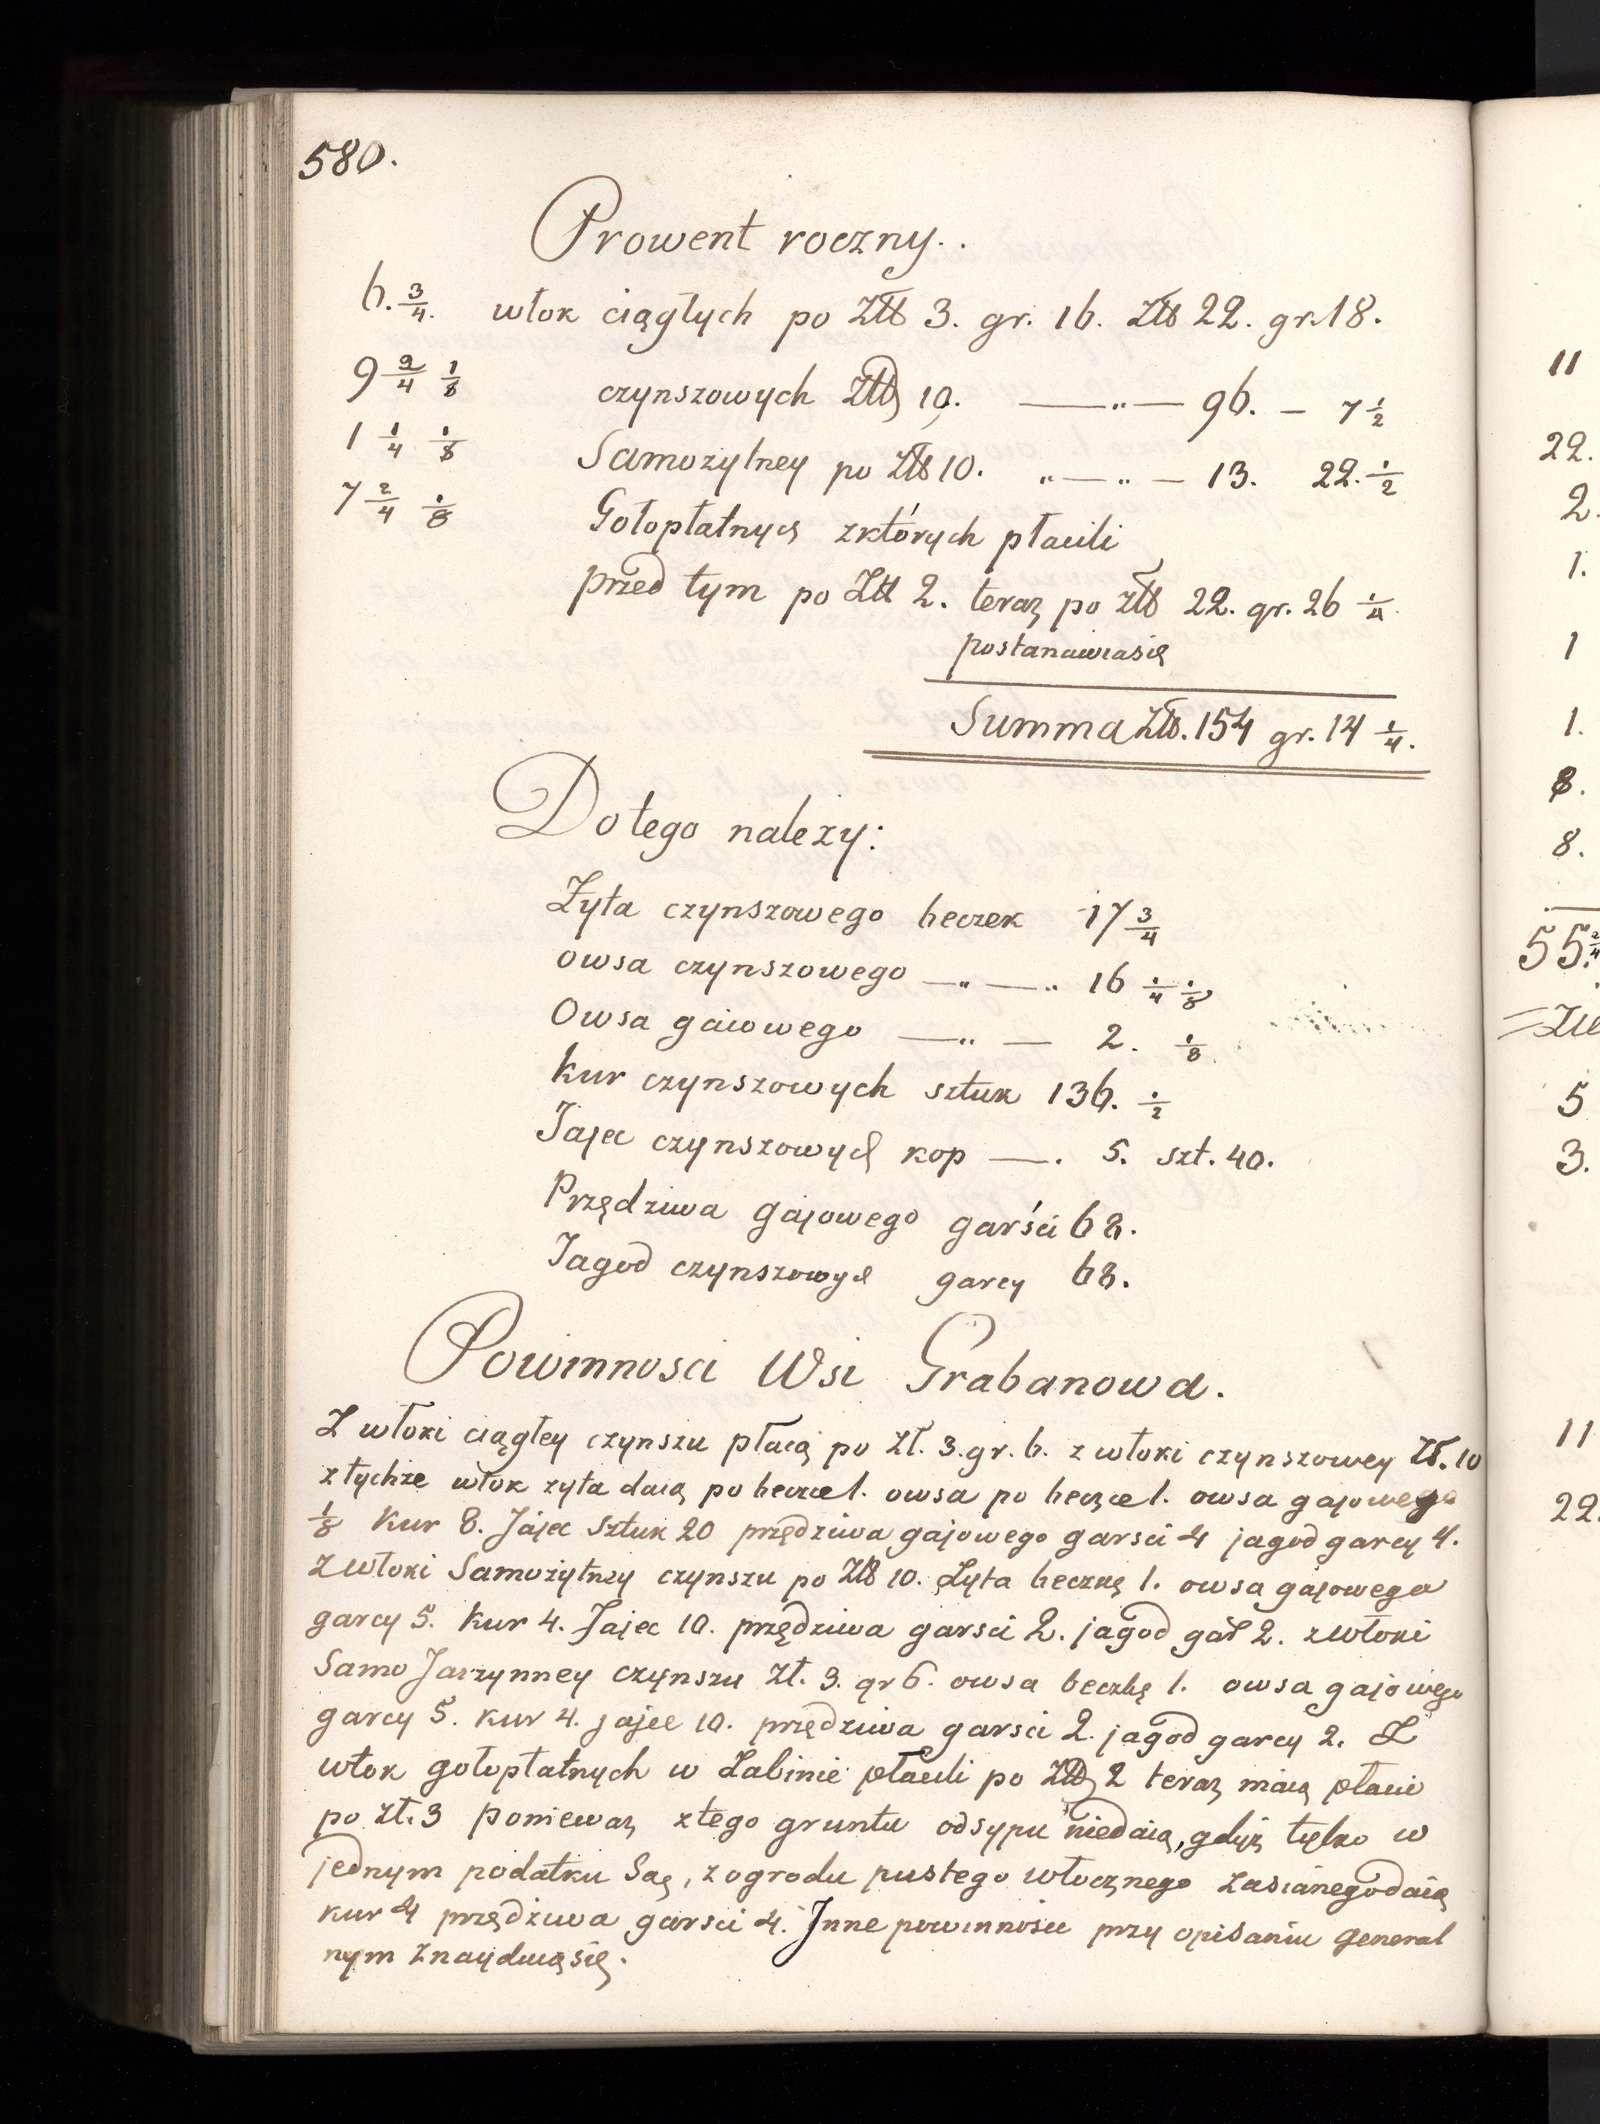 580.
Prowent roczny..
6. 3/4. włok ciągłych po Złł 3. gr. 16. Złł 22. gr. 18.
9 2/4 1/8 czynszowych Złł 10. —„— 96. — 7 1/2
1 1/4 1/8 Samozytney po Złł 10. „—„— 13. 22. 1/2
7 2/4 1/8 Gołopłatnych zktórych płacili
przed tym po Złł 2. teraz po złł 22. gr. 26 1/4
postanawiasię
Summa Złł. 154 gr. 14 1/4.
Do tego nalezy:
Żyta czynszowego beczek 17 3/4
owsa czynszowego —„—„ 16 1/4 1/8
Owsa gaiowego —„— 2. 1/8
Kur czynszowych sztuk 136. 1/2
Jajec czynszowych kop —. 5. szt. 40.
Przędziwa gajowego garści 68.
Jagod czynszowych garcy 68.
Powinnosci Wsi Grabanowa.
Z włoki ciągłey czynszu płacą po Zł. 3. gr. 6. z włoki czynszowey Zł. 10
z tychże włok zyta daią po beczce 1. owsa po beczce 1. owsa gajowego
1/8 Kur 8. Jajec Sztuk 20 przędziwa gajowego garsci 4 jagod garcy 4.
z włoki Samozytney czynszu po Złł 10. Zyta beczkę 1. owsa gajowego
garcy 5. Kur 4. Jajec 10. przędziwa garsci 2. jagod gar 2. z włoki
Samo Jarzynney czynszu Zł. 3. gr 6. owsa beczkę 1. owsa gajowego
garcy 5. kur 4. jajec 10. przędziwa garsci 2. jagod garcy 2. Z
włok gołopłatnych w Łabinie płacili po Złł 2 teraz maią płacic
po Zł. 3 poniewaz ztego gruntu odsypu niedaią, gdyż tylko w
jednym podatku Saę, z ogrodu pustego włocznego zasianegodaią
kur 4 przędziwa garsci 4. Inne powinnosci przy opisaniu general
nym znayduiąsię.
11
22.
2.
1.
1
1.
8.
8.
55. 2/4
5
3.
11
22.